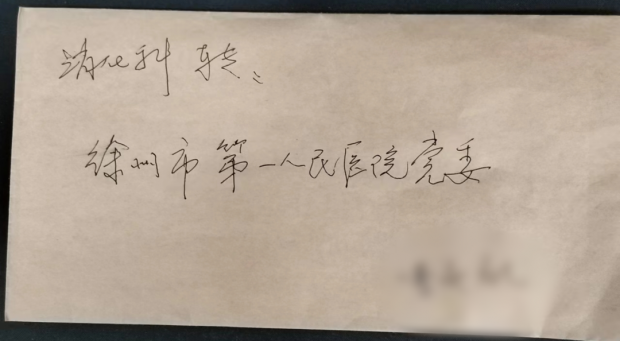 消化科 转:
徐州市第一人民医院党委